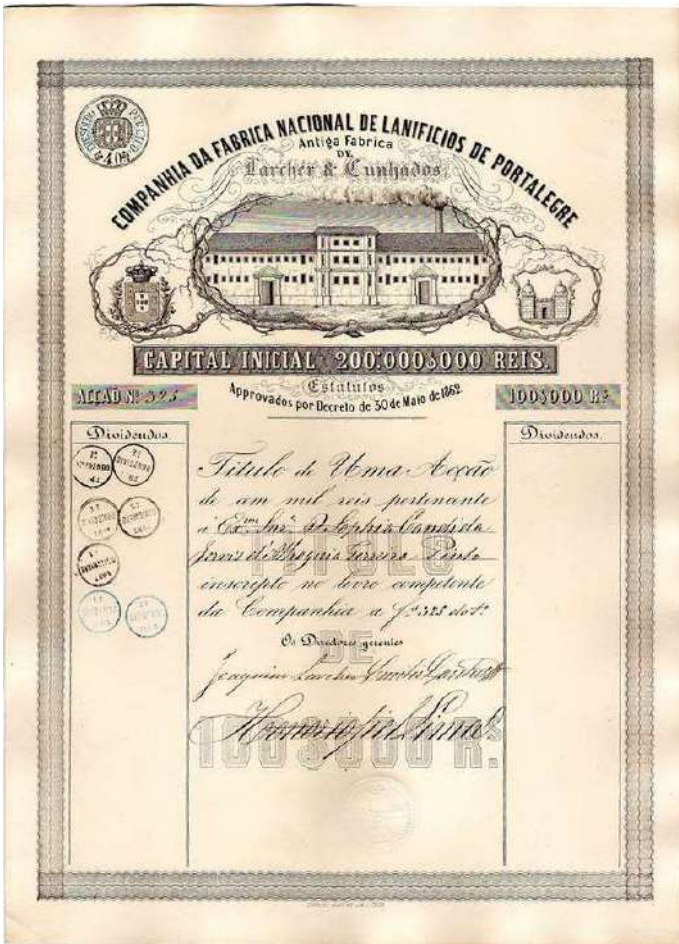 COMPANHIA DA FABRICA NACIONAL DE LANIFICIOS DE PORTALEGRE
Antiga Fabrica
DE
Larcher & Cunhados
CAPITAL INICIAL 200:000$000 REIS.
Estatutos
Approvados por Decreto de 30 de Maio de 1862
ACÇÃO Nº 325
100$000 RS
Dividendos.
Dividendos.
Titulo de Uma Acção
de cem mil reis pertencente
a Exma Snra D. Sophia Candida
Ferreira Pinto
inscripto no livro competente
da Companhia a fs 325 do 1º
Os Directores gerentes
Joaquim Larcher
TITULO
DE
100$000 RS